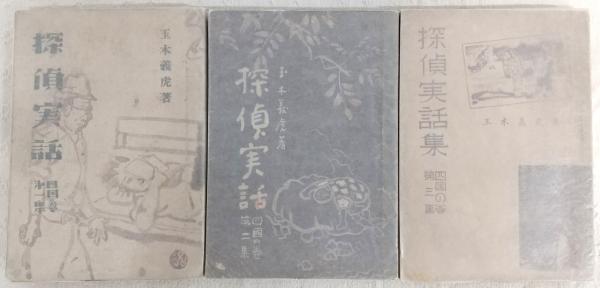 玉木義虎著
探偵実話
四国の巻
第一集
玉木義虎著
探偵実話
四国の巻
第二集
探偵実話集
玉木義虎著
四国の巻
第三集